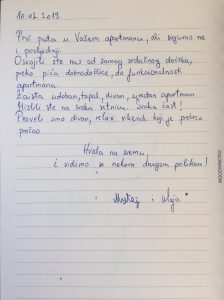 10.02.2019.
Prvi puta u Vašem apartmanu, ali sigurno ne
i posljednji.
Osvojili ste nas od samog srdačnog dočeka,
preko pića dobrodošlice, do funkcionalnosti
apartmana.
Zaista udoban, topal, divan, uredan apartman.
Mislili ste na svaku sitnicu. Svaka čast!
Proveli smo divan, relax vikend koji je prebrzo
prošao.
Hvala na svemu,
i vidimo se nekom drugom prilikom!
Matej i Maja